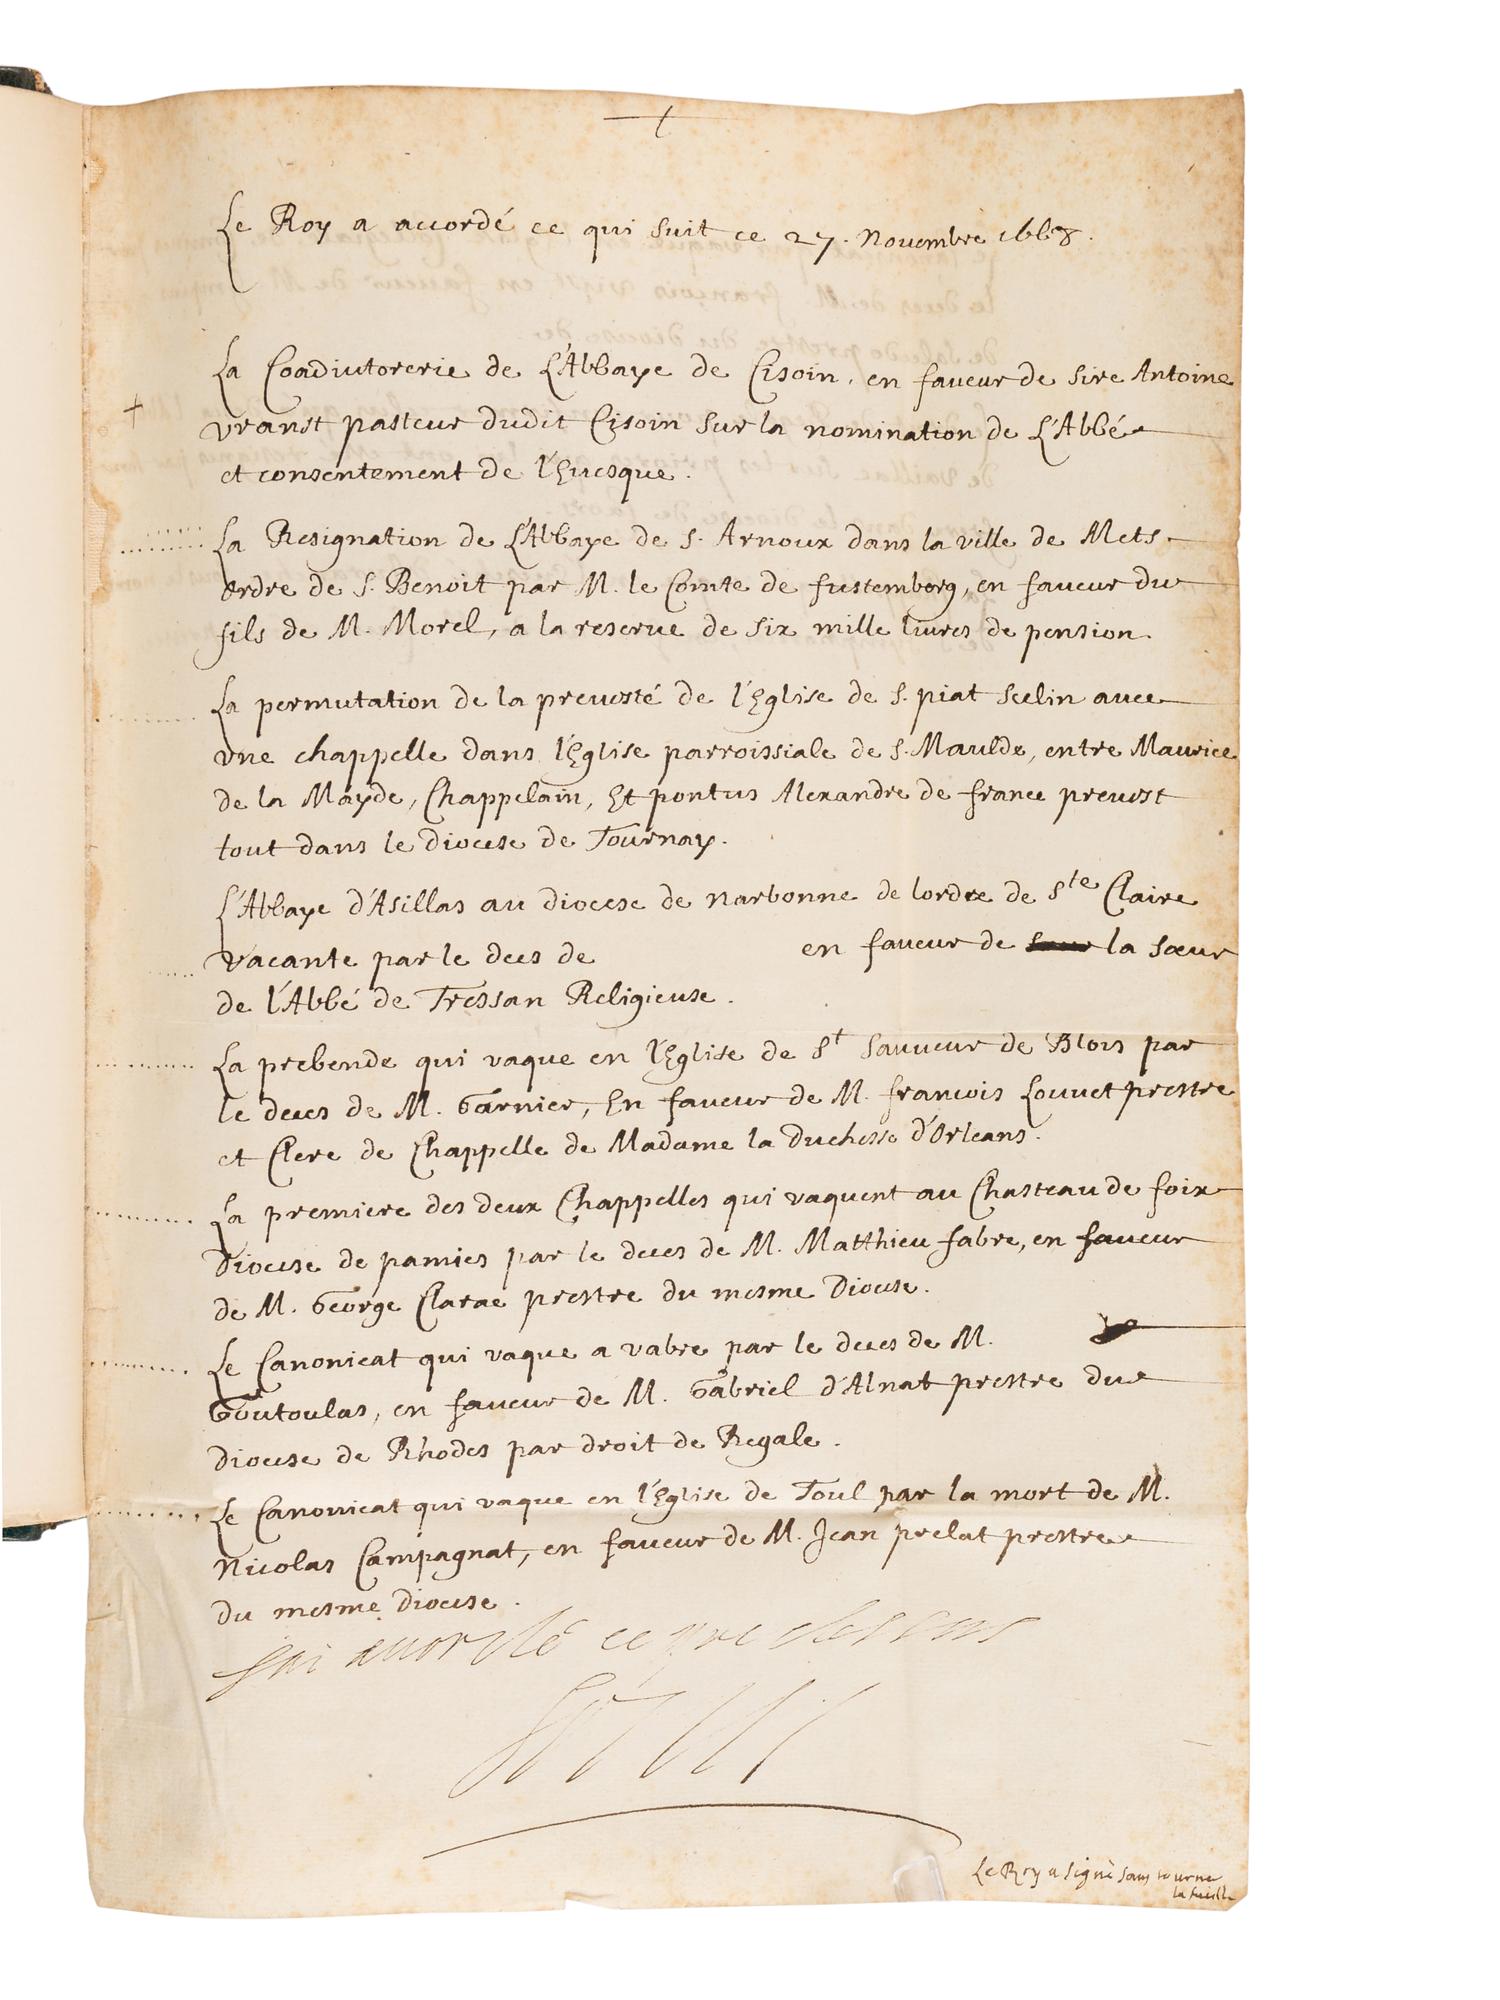 Le Roy a accordé ce qui suit ce 27. Novembre 1668.
La Coadiutorerie de L'Abbaye de Cisoin, en faveur de sire Antoine
vranst pasteur dudit Cisoin sur la nomination de L'Abbé
et consentement de l'Euesque.
La Resignation de L'Abbaye de S. Arnoux dans la ville de Mets
Ordre de S. Benoit par M. le Comte de fustemberg, en faueur du
fils de M. Morel, a la reserue de six mille liures de pension.
La permutation de la preuosté de l'Eglise de S. piat Seclin auec
vne chappelle dans l'Eglise parroissiale de S. Maulde, entre Maurice
de la Mayde, Chappelain, Et pontus Alexandre de france preuost
tout dans le diocese de Tournay.
L'Abbaye d'Asillas au diocese de narbonne de lordre de Ste Claire
vacante par le deces de en faueur de la sœur
de l'Abbé de Tressan Religieuse.
La prebende qui vaque en l'Eglise de St Sauueur de Blois par
le deces de M. Garnier, En faueur de M. francois Louuet prestre
et Clerc de Chappelle de Madame la Duchesse d'Orleans.
La premiere des deux Chappelles qui vaquent au Chasteau de foix
Diocese de pamies par le deces de M. Matthieu fabre, en faueur
de M. George Clarac prestre du mesme Diocese.
Le Canonicat qui vaque a vabre par le deces de M.
Goutoulas, en faueur de M. Gabriel d'Alnat prestre du
Diocese de Rhodes par droit de Regale.
Le Canonicat qui vaque en l'Eglise de Toul par la mort de M.
Nicolas Campagnat, en faueur de M. Jean prelat prestre
du mesme Diocese.
Jai accordé ce que dessus
Louis
Le Roy a signé sans tourner
la fueille